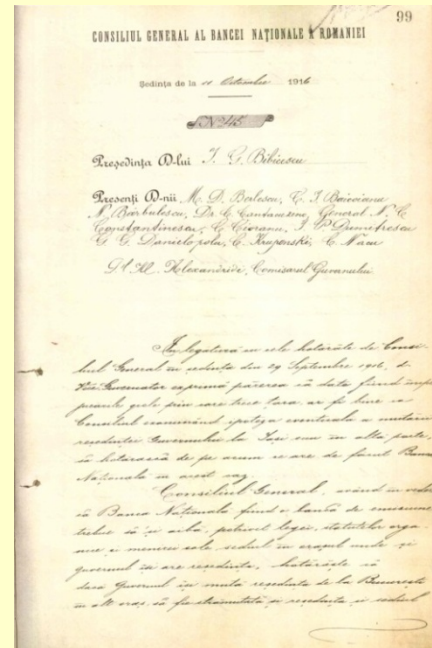 99
CONSILIUL GENERAL AL BANCEI NAȚIONALE A ROMANIEI
Ședința de la 11 Octombrie 1916
No 45
Președința D-lui I. G. Bibicescu
Presenți D-nii M. D. Berlescu, C. I. Băicoianu
N. Bărbulescu, Dr. C. Cantacuzene, General N. C.
Constantinescu, C. Cioranu, I. P. Dimitrescu
G. G. Danielopolu, C. Krupenski, C. Nacu
Al. Alexandride, Comisarul Guvernului
In legatură cu cele hotarâte de Consi-
liul General in ședința din 29 Septembre 1916, d.
Vice Guvernator exprimă părerea că data fiind
grele prin care trece tara, ar fi bine ca
Consiliul examinând ipoteza eventuala a mutarii
resedintei Guvernului la Iași sau in alta parte,
să hotărască de pe acum ce are de facut Banca
Natională in acest caz
Consiliul General, având in vedere
că Banca Natională fiind o bancă de emisiune
trebue să-și aiba, potrivit legei, statutelor
sediul in orașul unde și
guvernul iși are resedinta, hotărăște că
daca Guvernul iși mută resedinta de la București
in alt oraș, să fie strămutată și sediul